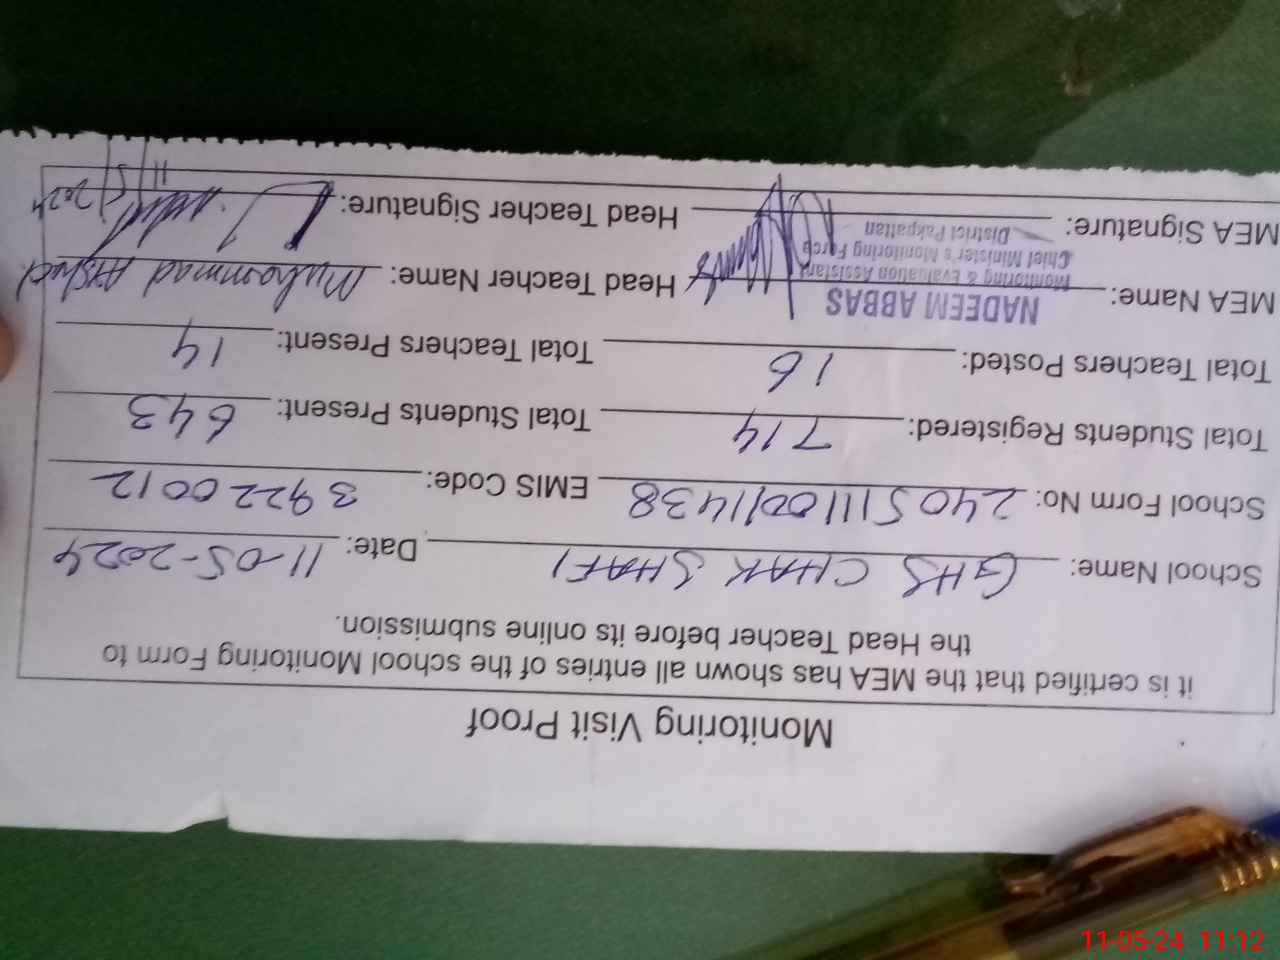 Monitoring Visit Proof
it is certified that the MEA has shown all entries of the school Monitoring Form to
the Head Teacher before its online submission.
School Name: GHS CHAK SHAFI Date: 11-05-2024
School Form No: 24051110011438 EMIS Code: 39220012
Total Students Registered: 714 Total Students Present: 643
Total Teachers Posted: 16 Total Teachers Present: 14
MEA Name: NADEEM ABBAS Head Teacher Name: Muhammad Arshad
Monitoring & Evaluation Assistant
Chief Minister's Monitoring Force
District Pakpattan
MEA Signature: Head Teacher Signature:
11/5/2024
11-05-24 11:12